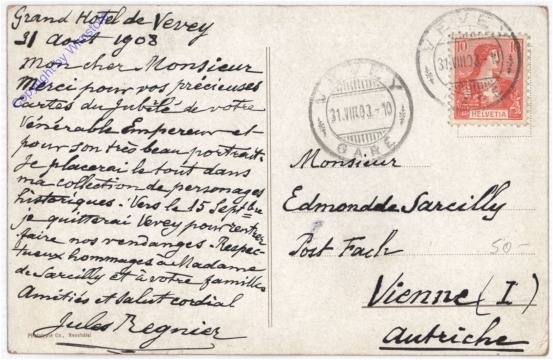 Grand Hotel de Vevey
31 Août 1908
Mon cher Monsieur
Merci pour vos précieuses
Cartes du Jubilé de votre
Vénérable Empereur et
pour son très beau portrait.
Je placerai le tout dans
ma collection de personages
historiques. Vers le 15 Septbre
je quitterai Vevey pour rentrer
faire nos vendanges. Respec-
tueux hommages à Madame
de Sarcilly et à votre famille
Amitiés et salut cordial
Jules Regnier
Phototypie Co., Neuchâtel
Copyright by
VEVEY
31.VIII.08.-10
GARE
VEVEY
31.VIII.08.-10
10 10
HELVETIA
Monsieur
Edmond de Sarcilly
Post Fach
50-
Vienne (I)
Autriche